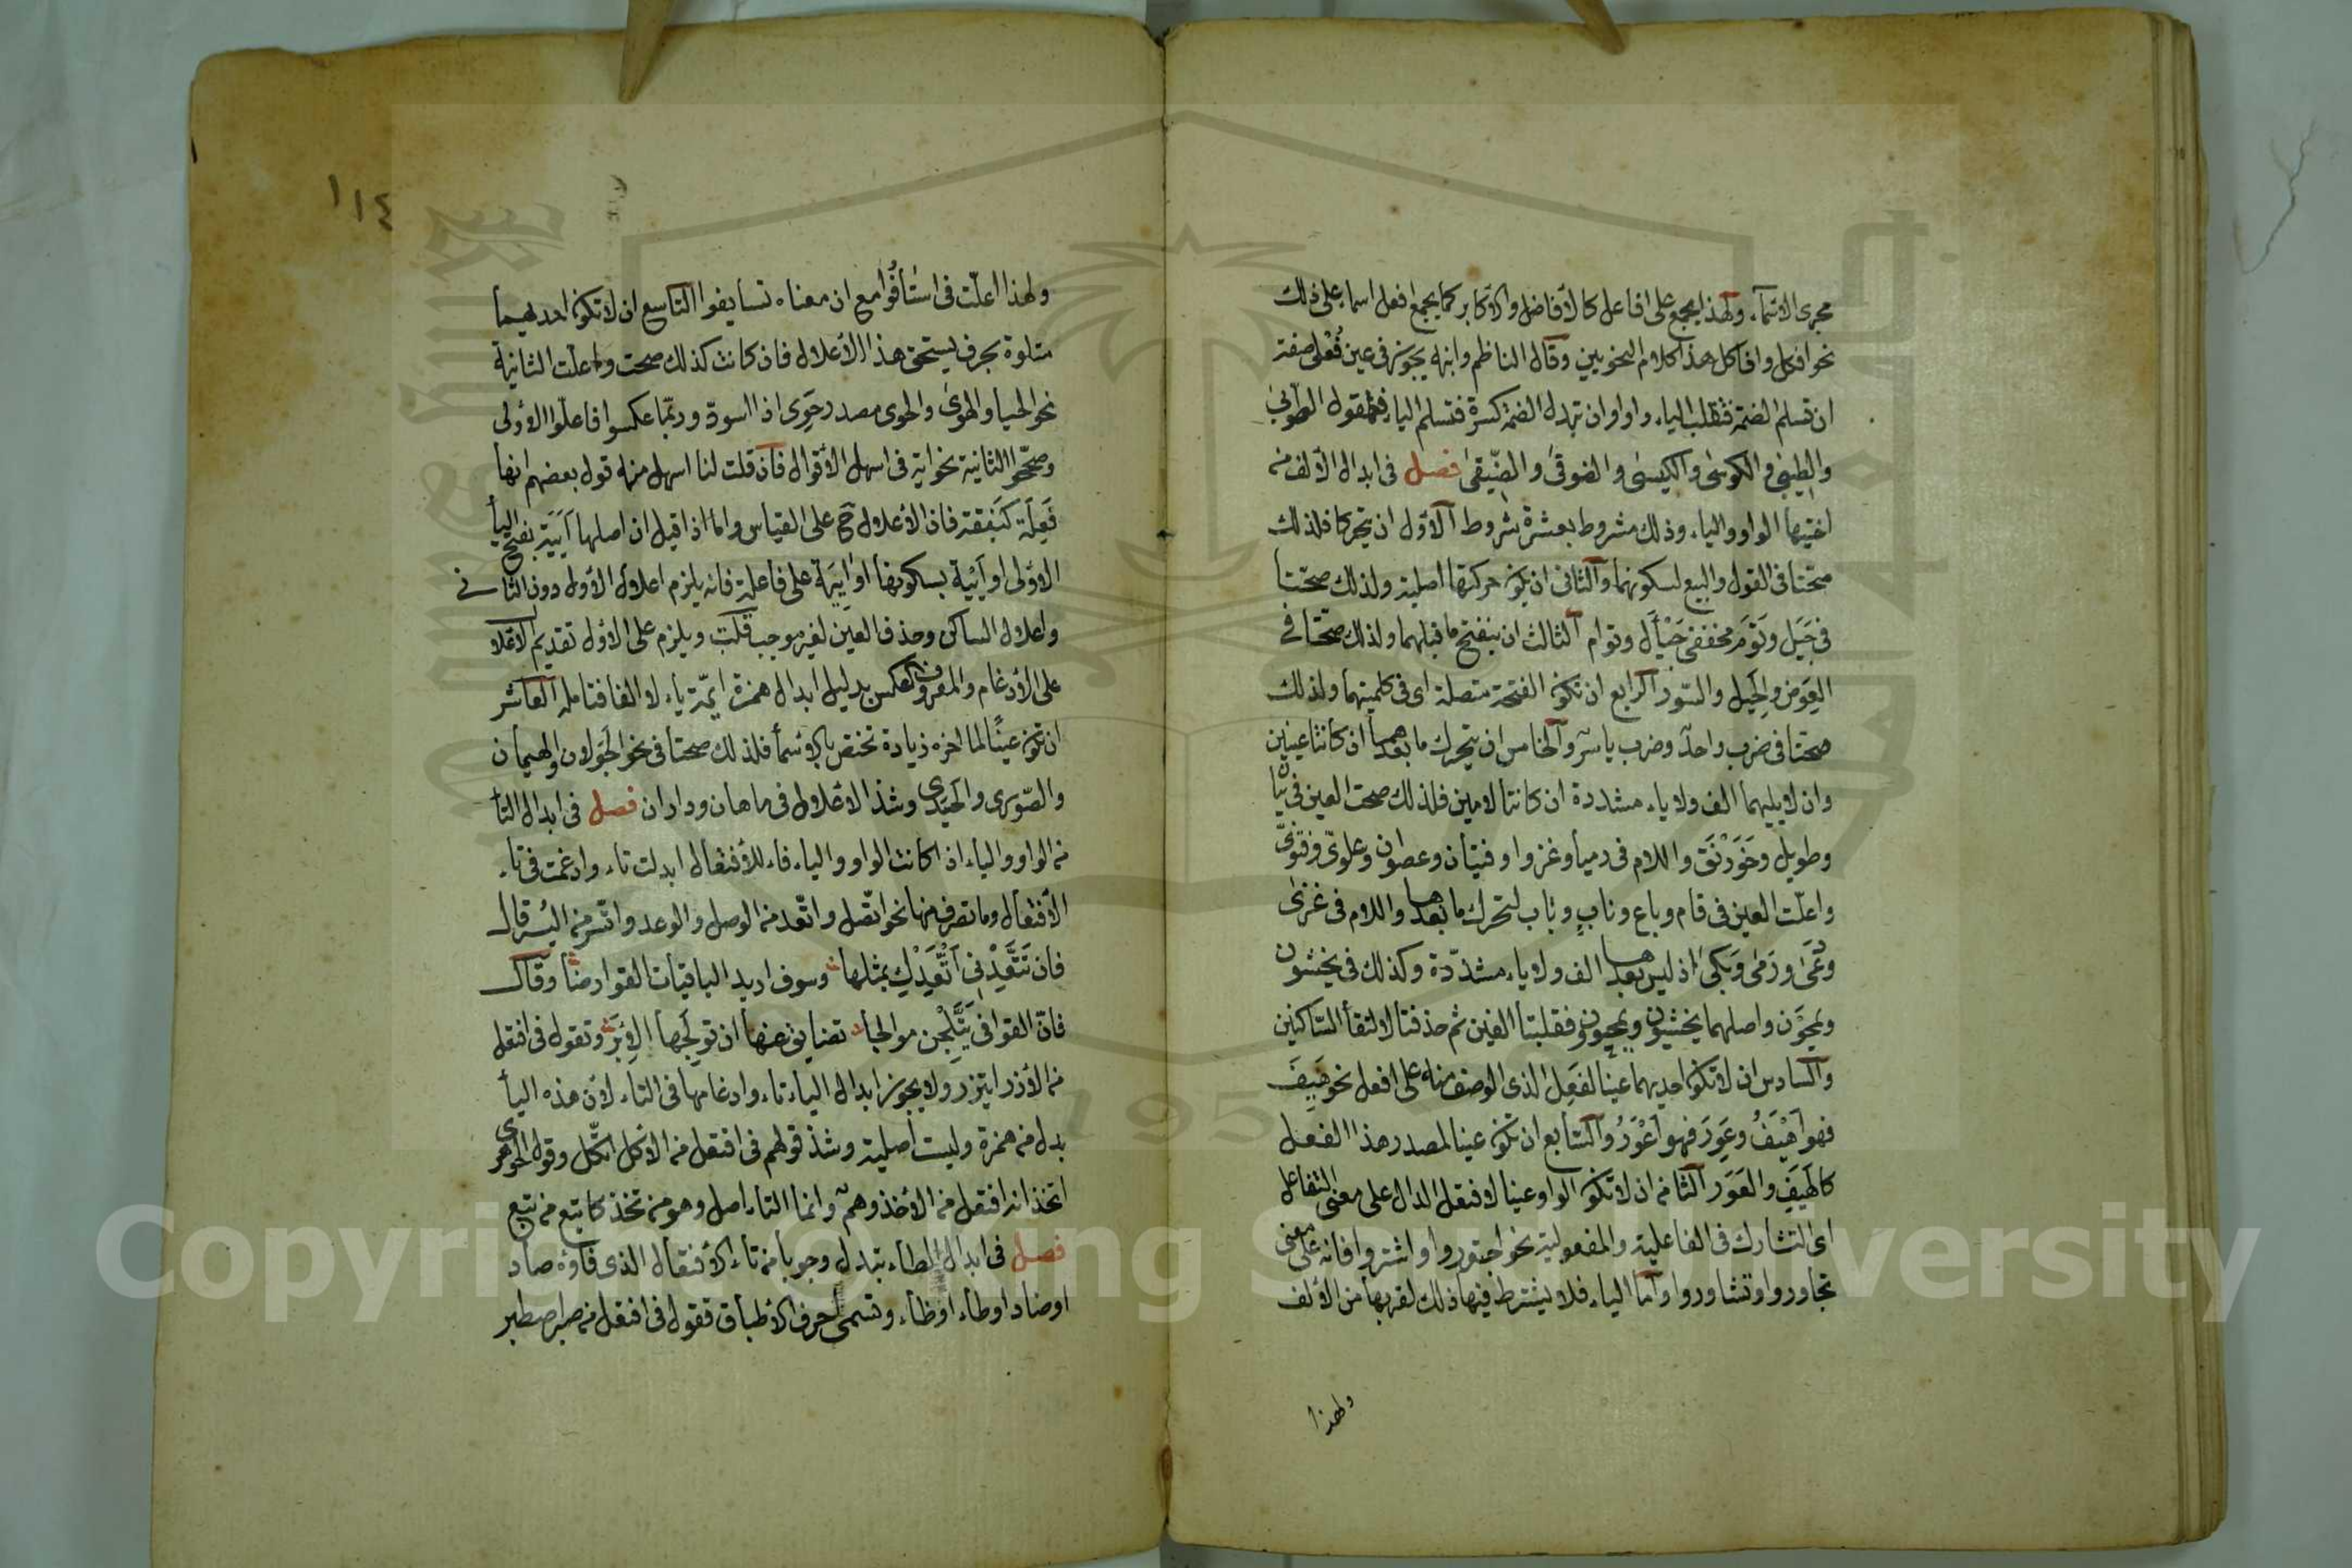 مجرى الاسماء ولهذا يجمع على افاعل كالافاضل والاكابر كما يجمع افعل اسماء على ذلك
نحو افكل وافاكل هذا كلام النحويين وقال الناظم وابنه يجوز في عين فُعْلى صفة
ان تسلم الضمة فتقلب الياء واوا وان تبدل الضمة كسرة فتسلم الياء فتقول الطوبى
والطيبى والكوسى والكيسى والضوقى والضيقى فصل في ابدال الالف من
اختيها الواو والياء وذلك مشروط بعشرة شروط الاول ان يتحركا فلذلك
صحتا في القول والبيع لسكونهما والثاني ان تكون حركتها اصلية ولذلك صحتا
في جَيَل وتَوَم مخففى جَيْأَل وتوأم الثالث ان ينفتح ما قبلهما ولذلك صحتا في
العِوَض والحِيَل والسور الرابع ان تكون الفتحة متصلة اى في كلمتيهما ولذلك
صحتا في ضرب واحد وضرب ياسر والخامس ان يتحرك ما بعدهما ان كانتا عينين
وان لا يليهما الف ولا ياء مشددة ان كانتا لامين فلذلك صحت العين في بيان
وطويل وخَوَرْنَق واللام في رميا وغزوا وفتيان وعصوان وعلوىّ وفتوىّ
واعلّت العين في قام وباع وناب وباب لتحرك ما بعدها واللام في غزى
ودعى ورَمى وبَكى اذ ليس بعدها الف ولا ياء مشدّدة وكذلك في يخشون
ويمحون واصلهما يخشيون ويمحوون فقلبتا الفين ثم حذفتا لالتقا الساكنين
والسادس ان لا تكون احديهما عينا لفَعِل الذى الوصف منه على افعل نحو هَيِفَ
فهو اَهْيَفُ وعَوِرَ فهو اَعْوَرُ والسابع ان تكون عينا لمصدر هذا الفعل
كالهَيَف والعَوَر الثامن ان لا تكون الواو عينا لافتعل الدال على معنى التفاعل
اى التشارك في الفاعلية والمفعولية نحو اجتوروا واشتوروا فانه على معنى
تجاوروا وتشاوروا واما الياء فلا يشترط فيها ذلك لقربها من الالف
ولهذا
١١٤
ولهذا اعلّت في استأفوا مع ان معناه تسايفوا التاسع ان لا تكون احديهما
متلوة بحرف يستحق هذا الاعلال فان كانت كذلك صحت واعلّت الثانية
نحو الحيا والهوى والحوى مصدر حَوِى اذا اسودّ وربّما عكسوا فاعلّوا الاولى
وصحّحوا الثانية نحو اية في اسهل الاقوال فان قلت لنا اسهل منه قول بعضهم انها
فَعِلَة كنَبِقَة فان الاعلال ح على القياس واما اذا قيل ان اصلها اَيَيَة بفتح اليا
الاولى او اَيْيَة بسكونها او آيِيَة على فاعلة فانه يلزم اعلال الاول دون الثانى
واعلال الساكن وحذف العين لغير موجب قلت ويلزم على الاول تقديم الاعلال
على الادغام والمعروف العكس بدليل ابدال همزة ايمّة ياء لا الفا فتامله العاشر
ان تكون عينًا لما اخره زيادة تختص بالاسما فلذلك صحتا في نحو الجَوَلان والهيمان
والصّوَرى والحَيَدى وشذ الاعلال في ماهان وداران فصل في ابدال التا
من الواو والياء اذا كانت الواو والياء فاء للافتعال ابدلت تاء وادغمت في تاء
الافتعال وما تصرف منها نحو اتّصل واتّعد من الوصل والوعد واتّسر من اليُسر قال
فان تَتَّعِدْنى اَتَّعِدْكَ بمثلها وسوف ازيد الباقيات القوارصا وقال
فان القوافى يَتَّلِجْن موالجا تضايق عنها ان تولّجها الاِبَر وتقول في افتعل
من الازر ايتزر ولا يجوز ابدال الياء تاء وادغامها في التاء لان هذه اليا
بدل من همزة وليست اصلية وشذ قولهم في افتعل من الاكل اتّكل وقول الجوهرى
اتخذ انه افتعل من الاخذ وهمٌ وانما التاء اصل وهو من تخذ كاتبع من تبع
فصل في ابدال الطاء تبدل وجوبا من تاء الافتعال الذى فاؤه صاد
او ضاد او طاء او ظاء وتسمى احرف الاطباق فتقول في افتعل من صبر اصطبر